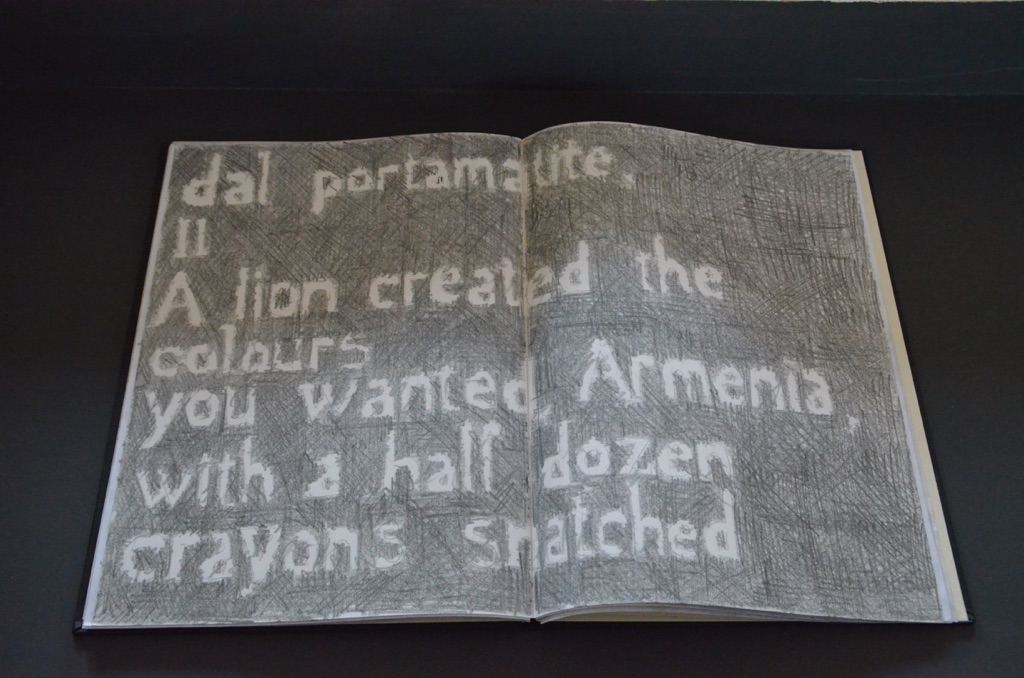 dal portamatite.
II
A lion created the
colours
you wanted, Armenia,
with a half dozen
crayons snatched